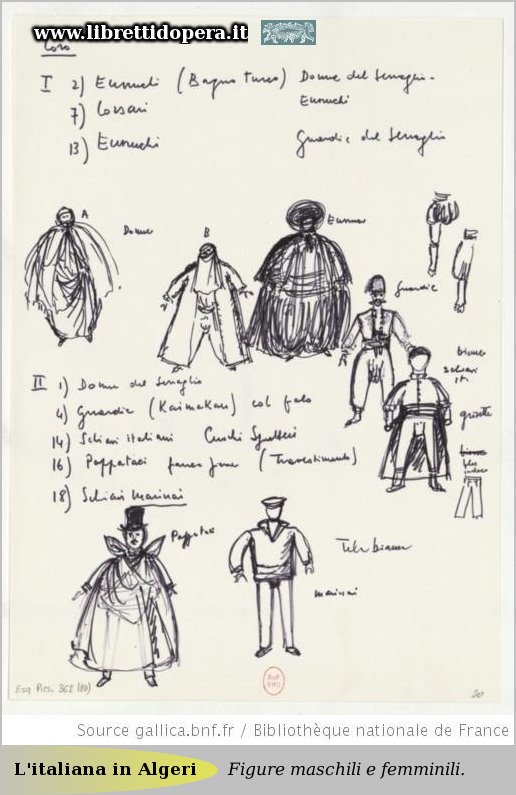 www.librettidopera.it
Coro
I 2) Eunuchi (Bagno turco) Donne del Serraglio -
Eunuchi
7) Corsari
13) Eunuchi Guardie del Serraglio
A
Donne
B
Eunuco
Guardie
bianco
schiavi
grisette
II 1) Donne del Serraglio
4) Guardie (Kaimakan) col palo
14) Schiavi italiani
16) Pappataci (Travestimento)
18) Schiavi Marinai
Pappataci
Tela bianca
marinai
Esq Pizzi. 362 (10)
Source gallica.bnf.fr / Bibliothèque nationale de France
L'italiana in Algeri Figure maschili e femminili.